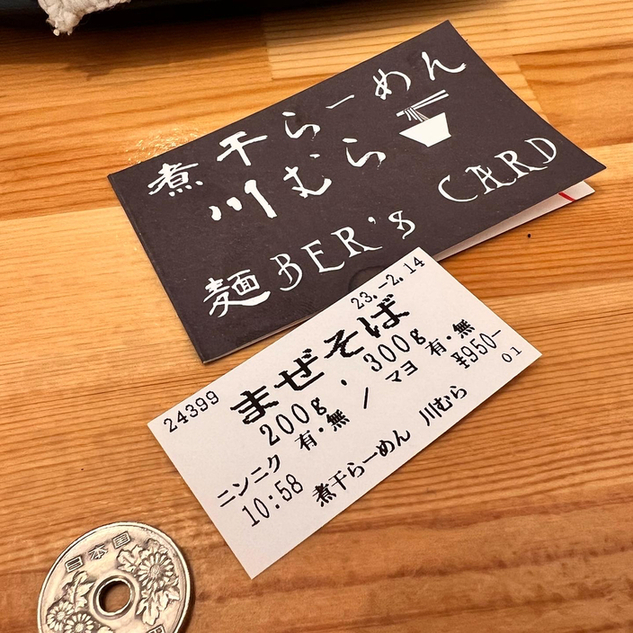 煮干らーめん
川むら
麺BER's CARD
23.-2.14
24399
まぜそば
200g・300g
ニンニク 有・無 / マヨ 有・無
¥950-
10:58 煮干らーめん 川むら
01
日本国